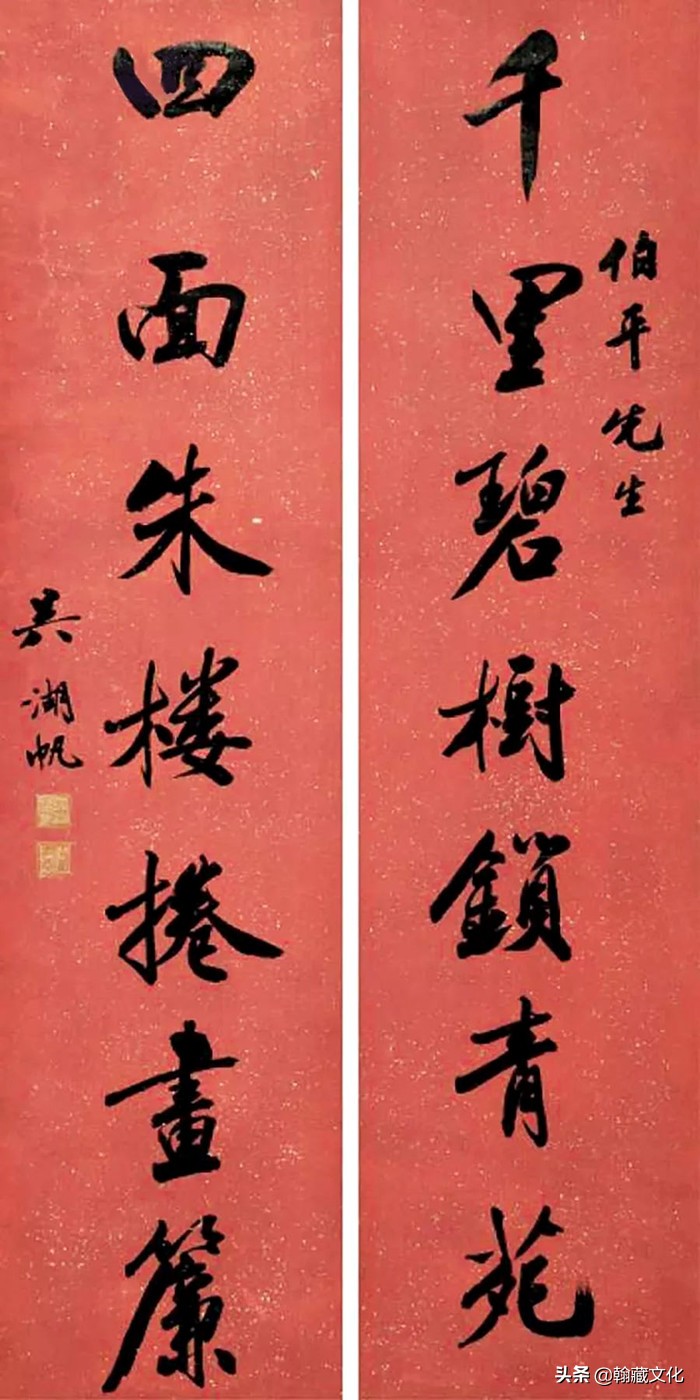 千里碧樹鎖青苑
伯平先生
四面朱樓捲畫簾
吴湖帆
头条 @翰藏文化